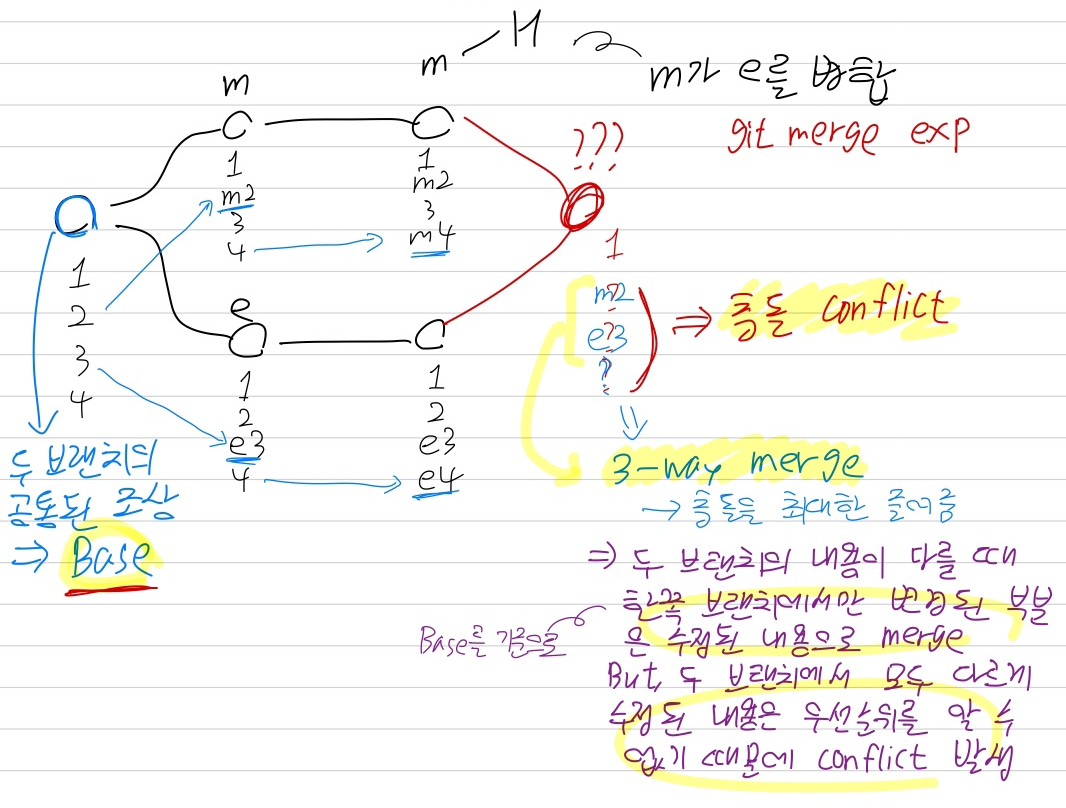 m
m
H
m가 e를 병합
git merge exp
???
1
m2
3
4
1
m2
3
m4
1
2
3
4
e
1
2
e3
4
1
2
e3
e4
1
m2
e3
?
⇒ 충돌 conflict
두 브랜치의
공통된 조상
⇒ Base
3-way merge
→ 충돌을 최대한 줄여줌
⇒ 두 브랜치의 내용이 다를 때
한쪽 브랜치에서만 변경된 부분
은 수정된 내용으로 merge
Base를 기준으로
But, 두 브랜치에서 모두 다르게
수정된 내용은 우선순위를 알 수
없기 때문에 conflict 발생